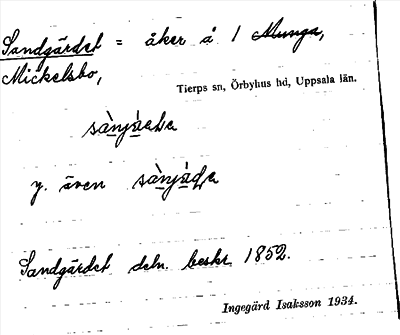 Sandgärdet = åker å 1 Munga,
Mickelsbo,
Tierps sn, Örbyhus hd, Uppsala län.
y. även
Sandgärdet deln. beskr. 1852.
Ingegärd Isaksson 1934.